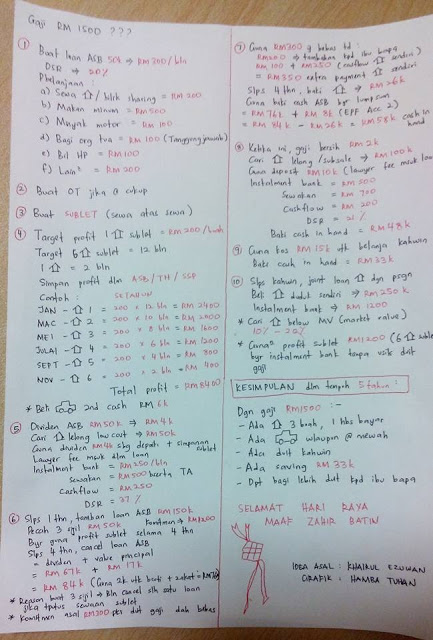 Gaji RM 1500 ???
① Buat loan ASB 50k → RM 300/bln
DSR → 20%
Pbelanjaan :
a) Sewa / bilik sharing = RM 200
b) Makan minum = RM 500
c) Minyak motor = RM 100
d) Bagi org tua = RM 100 (Tanggungjawab)
e) Bil HP = RM 100
f) Lain² = RM 200
② Buat OT jika x cukup
③ Buat SUBLET (sewa atas sewa)
④ Target profit 1 sublet = RM 200/buah
Target 6 sublet = 12 bln
1 = 2 bln
Simpan profit dlm ASB/TH/SSP
Contoh : SETAHUN
JAN - 1 = 200 x 12 bln = RM 2400
MAC - 2 = 200 x 10 bln = RM 2000
MEI - 3 = 200 x 8 bln = RM 1600
JULAI - 4 = 200 x 6 bln = RM 1200
SEPT - 5 = 200 x 4 bln = RM 800
NOV - 6 = 200 x 2 bln = RM 400
Total profit = RM 8400
* Beli 2nd cash RM 6k
⑤ Dividen ASB RM 50k → RM 4k
Cari lelong low cost → RM 50k
Guna dividen RM 4k sbg deposit + simpanan sublet
Lawyer fee msuk dlm loan
Instalment bank = RM 250/bln
Sewakan = RM 500 / TA
Cashflow = RM 250
DSR = 37 %
⑥ Slps 1 thn, tambah loan ASB RM 150k
Pecah 3 sijil RM 50k
Byr guna profit sublet selama 4 thn
Slps 4 thn, cancel loan ASB
= dividen + value principal
= RM 67k + RM 17k
= RM 84k
* Reason buat 3 sijil → Bln cancel slh satu loan
jika tputus sewaan sublet
* Komitmen asal RM 300 pkr dut gaji dah bebas
⑦ Guna RM 300 yg bebas td :
RM 200 → tambahan kpd ibu bapa
RM 100 + RM 250 (cashflow sendiri)
= RM 350 extra payment sendiri
Slps 4 thn, baki → RM 26k
Guna baki cash ASB byr lumpsum
= RM 76k + RM 8k (EPF Acc 2)
= RM 84k - RM 26k = RM 58k cash in hand
⑧ Ketika ini, gaji bersih RM 2k
Cari lelong / subsale → RM 100k
Guna deposit RM 10k (lawyer fee msuk loan)
Instalment bank = RM 500
Sewakan = RM 700
Cashflow = RM 200
DSR = 21 %
Baki cash in hand = RM 48k
⑨ Guna kos RM 15k utk belanja kahwin
Baki cash in hand = RM 33k
⑩ Slps kahwin, joint loan dgn psgn
Beli duduk sendiri → RM 250k
Instalment bank → RM 1200
* Cari below MV (market value)
10% - 20%
* Guna profit sublet RM 1200 (6 sublet)
byr instalment bank tanpa usik duit
gaji
KESIMPULAN dlm tempoh 5 tahun :
Dgn gaji RM 1500 :-
- Ada 3 buah, 1 hbs bayar
- Ada walaupun x mewah
- Ada duit kahwin
- Ada saving RM 33k
- Dpt bagi lebih duit kpd ibu bapa
SELAMAT HARI RAYA
MAAF ZAHIR BATIN
IDEA ASAL : KHAIRUL EZUWAN
GRAFIK : HAMBA TUHAN